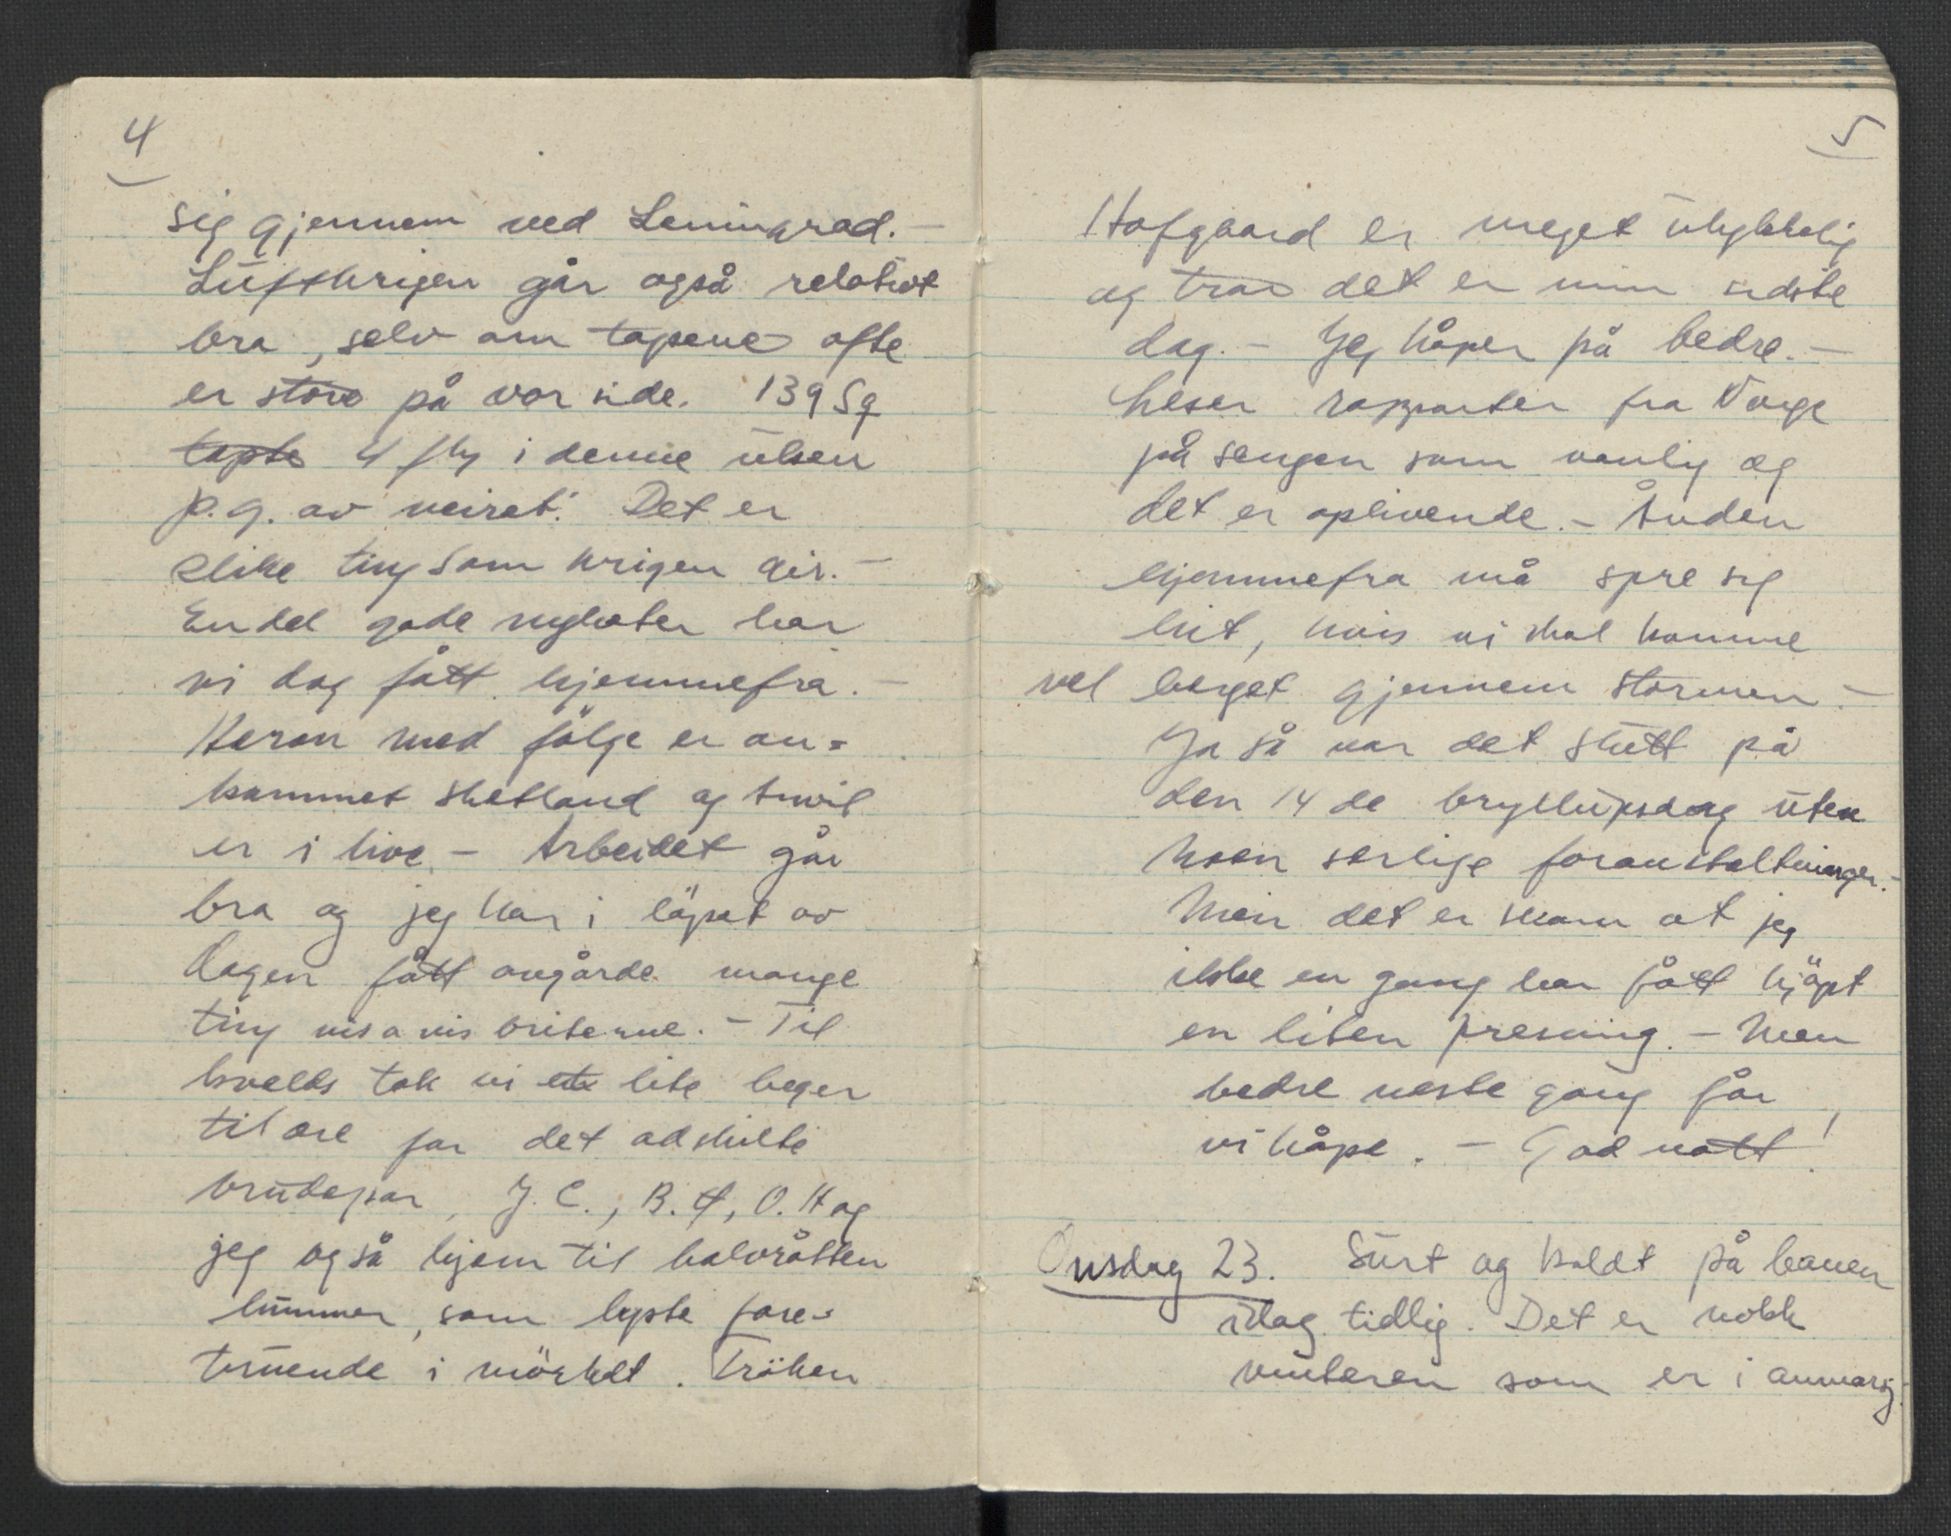 4
sig gjennem ved Leningrad. -
Luftkrigen går også relativt
bra, selv om tapene ofte
er store på vor side. 139 Sq
tapte 4 fly i denne uken
p.g. av veiret. Det er
slike ting som krigen gir. -
En del gode nyheter har
vi dag fått hjemmefra. -
Heron med følge er an=
kommet Shetland og
er i live - Arbeidet går
bra og jeg har i løpet av
dagen fått avgårde mange
ting vis a vis briterne. - Til
kvelds tok vi lite beger
til ære for det adskilte
brudepar, J.C., B. O. H og
jeg også hjem til halvråtten
hummer, som lyste fore=
truende i mörket. Fröken
5
Hofgaard er meget ulykkelig
og tror det er min sidste
dag. - Jeg håper på bedre. -
Leser rapporter fra Norge
på sengen som vanlig og
det er oplivende. - Ånden
hjemmefra må spre sig
hit, hvis vi skal komme
vel berget gjennem stormen. -
Ja så var det slutt på
den 14 de bryllupsdag uten
noen særlige foranstaltninger. -
Men det er skam at jeg
ikke en gang har fått kjöpt
en liten presning. - Men
bedre neste gang får
vi håpe. - God natt!
Onsdag 23. Surt og koldt på banen
idag tidlig. Det er nokk
vinteren som er i anmarsj.